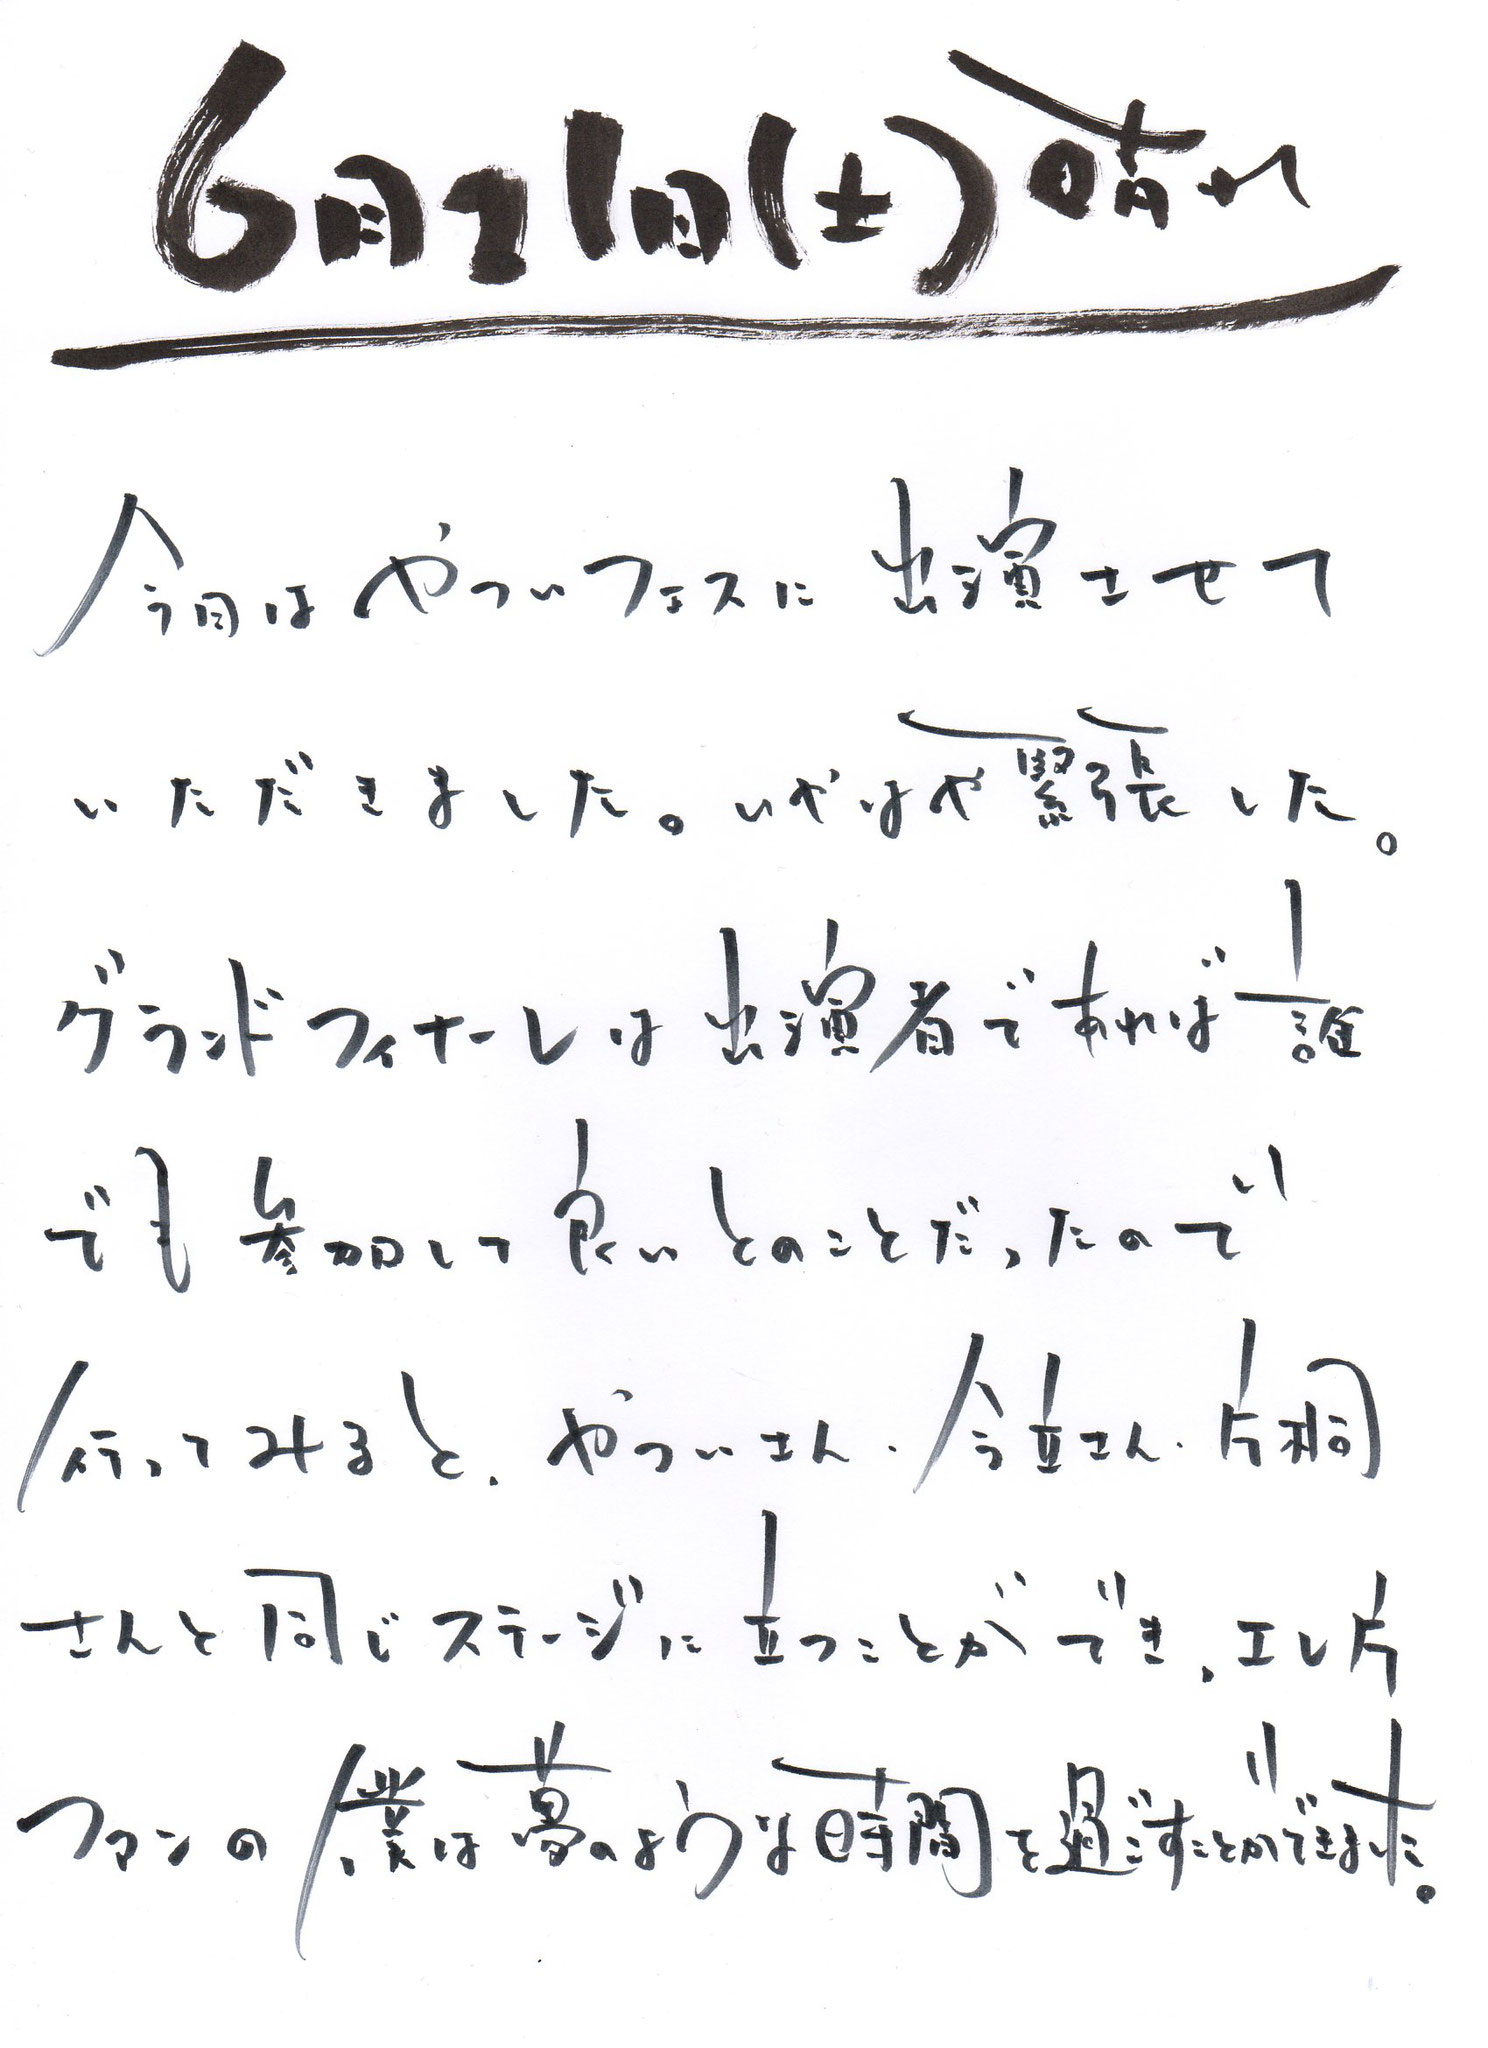 6月21日(土)晴れ
今日はやついフェスに出演させて
いただきました。いやはや緊張した。
グランドフィナーレは出演者であれば誰
でも参加して良いとのことだったので
行ってみると、やついさん・今立さん・片桐
さんと同じステージに立つことができ、エレ片
ファンの僕は夢のような時間を過ごすことができました。